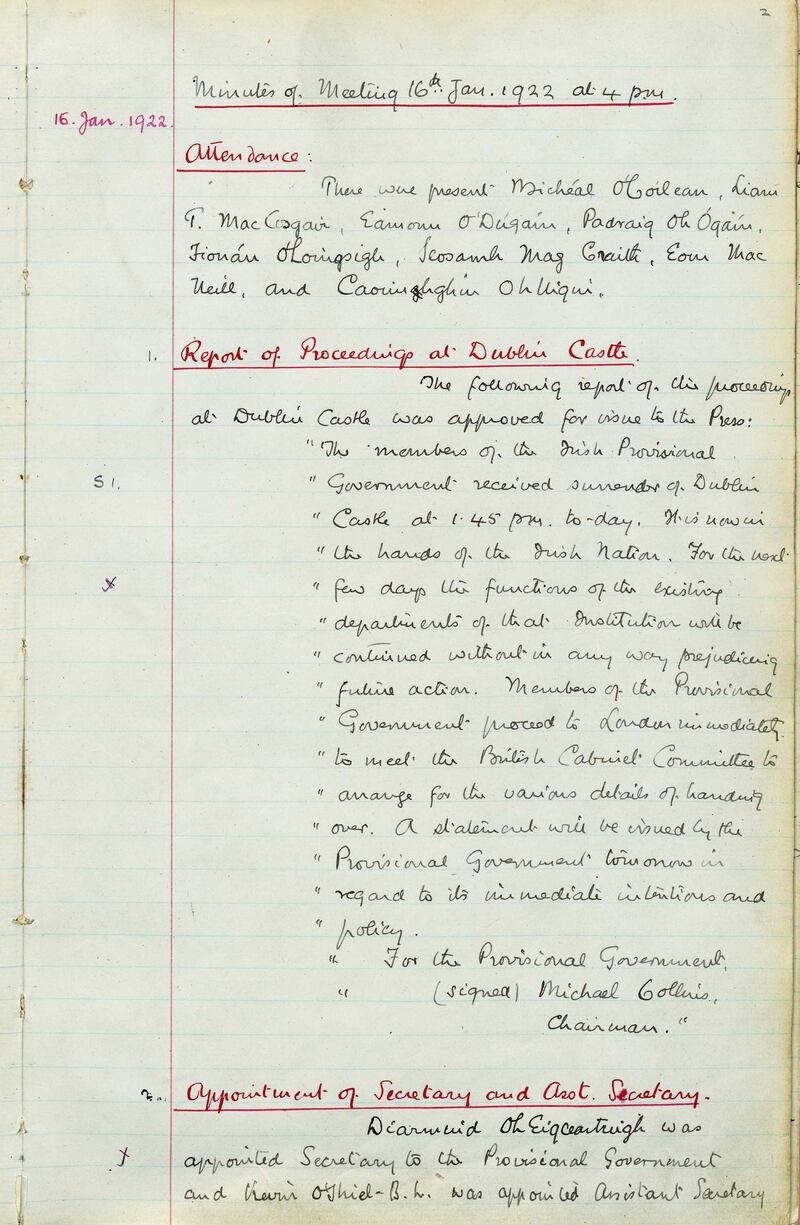 2
Minutes of Meeting 16th Jan. 1922 at 4 pm.
16. Jan. 1922.
Attendance:
There were present Micheál O'Coilean, Liam
T. MacCosgair, Eamonn O'Dugain, Padraig Oh Ógáin,
Fionán O'Loingsigh, Seosamh Mag Craith, Eoin Mac
Neill, and Caoimhghin Oh Uigin.
1. Report of Proceedings at Dublin Castle.
The following report of the proceedings
at Dublin Castle was approved for issue to the Press:
"The members of the Irish Provisional
S1. " Government received surrender of Dublin
" Castle at 1.45 pm. to-day. It is now in
" the hands of the Irish Nation. For the next
x " few days the functions of the existing
" departments of that Institution will be
" continued without in any way prejudicing
" future action. Members of the Provisional
" Government proceed to London immediately
" to meet the British Cabinet Committee to
" arrange for the various details of handing
" over. A statement will be issued by the
" Provisional Government tomorrow in
" regard to its immediate intentions and
" policy.
" For the Provisional Government,
" (signed) Michael Collins,
Chairman."
2. Appointment of Secretary and Asst. Secretary.
Diarmuid Oh Eigceartuigh was
x appointed Secretary to the Provisional Government
and Kevin O'Shiel-B.L. was appointed Assistant Secretary